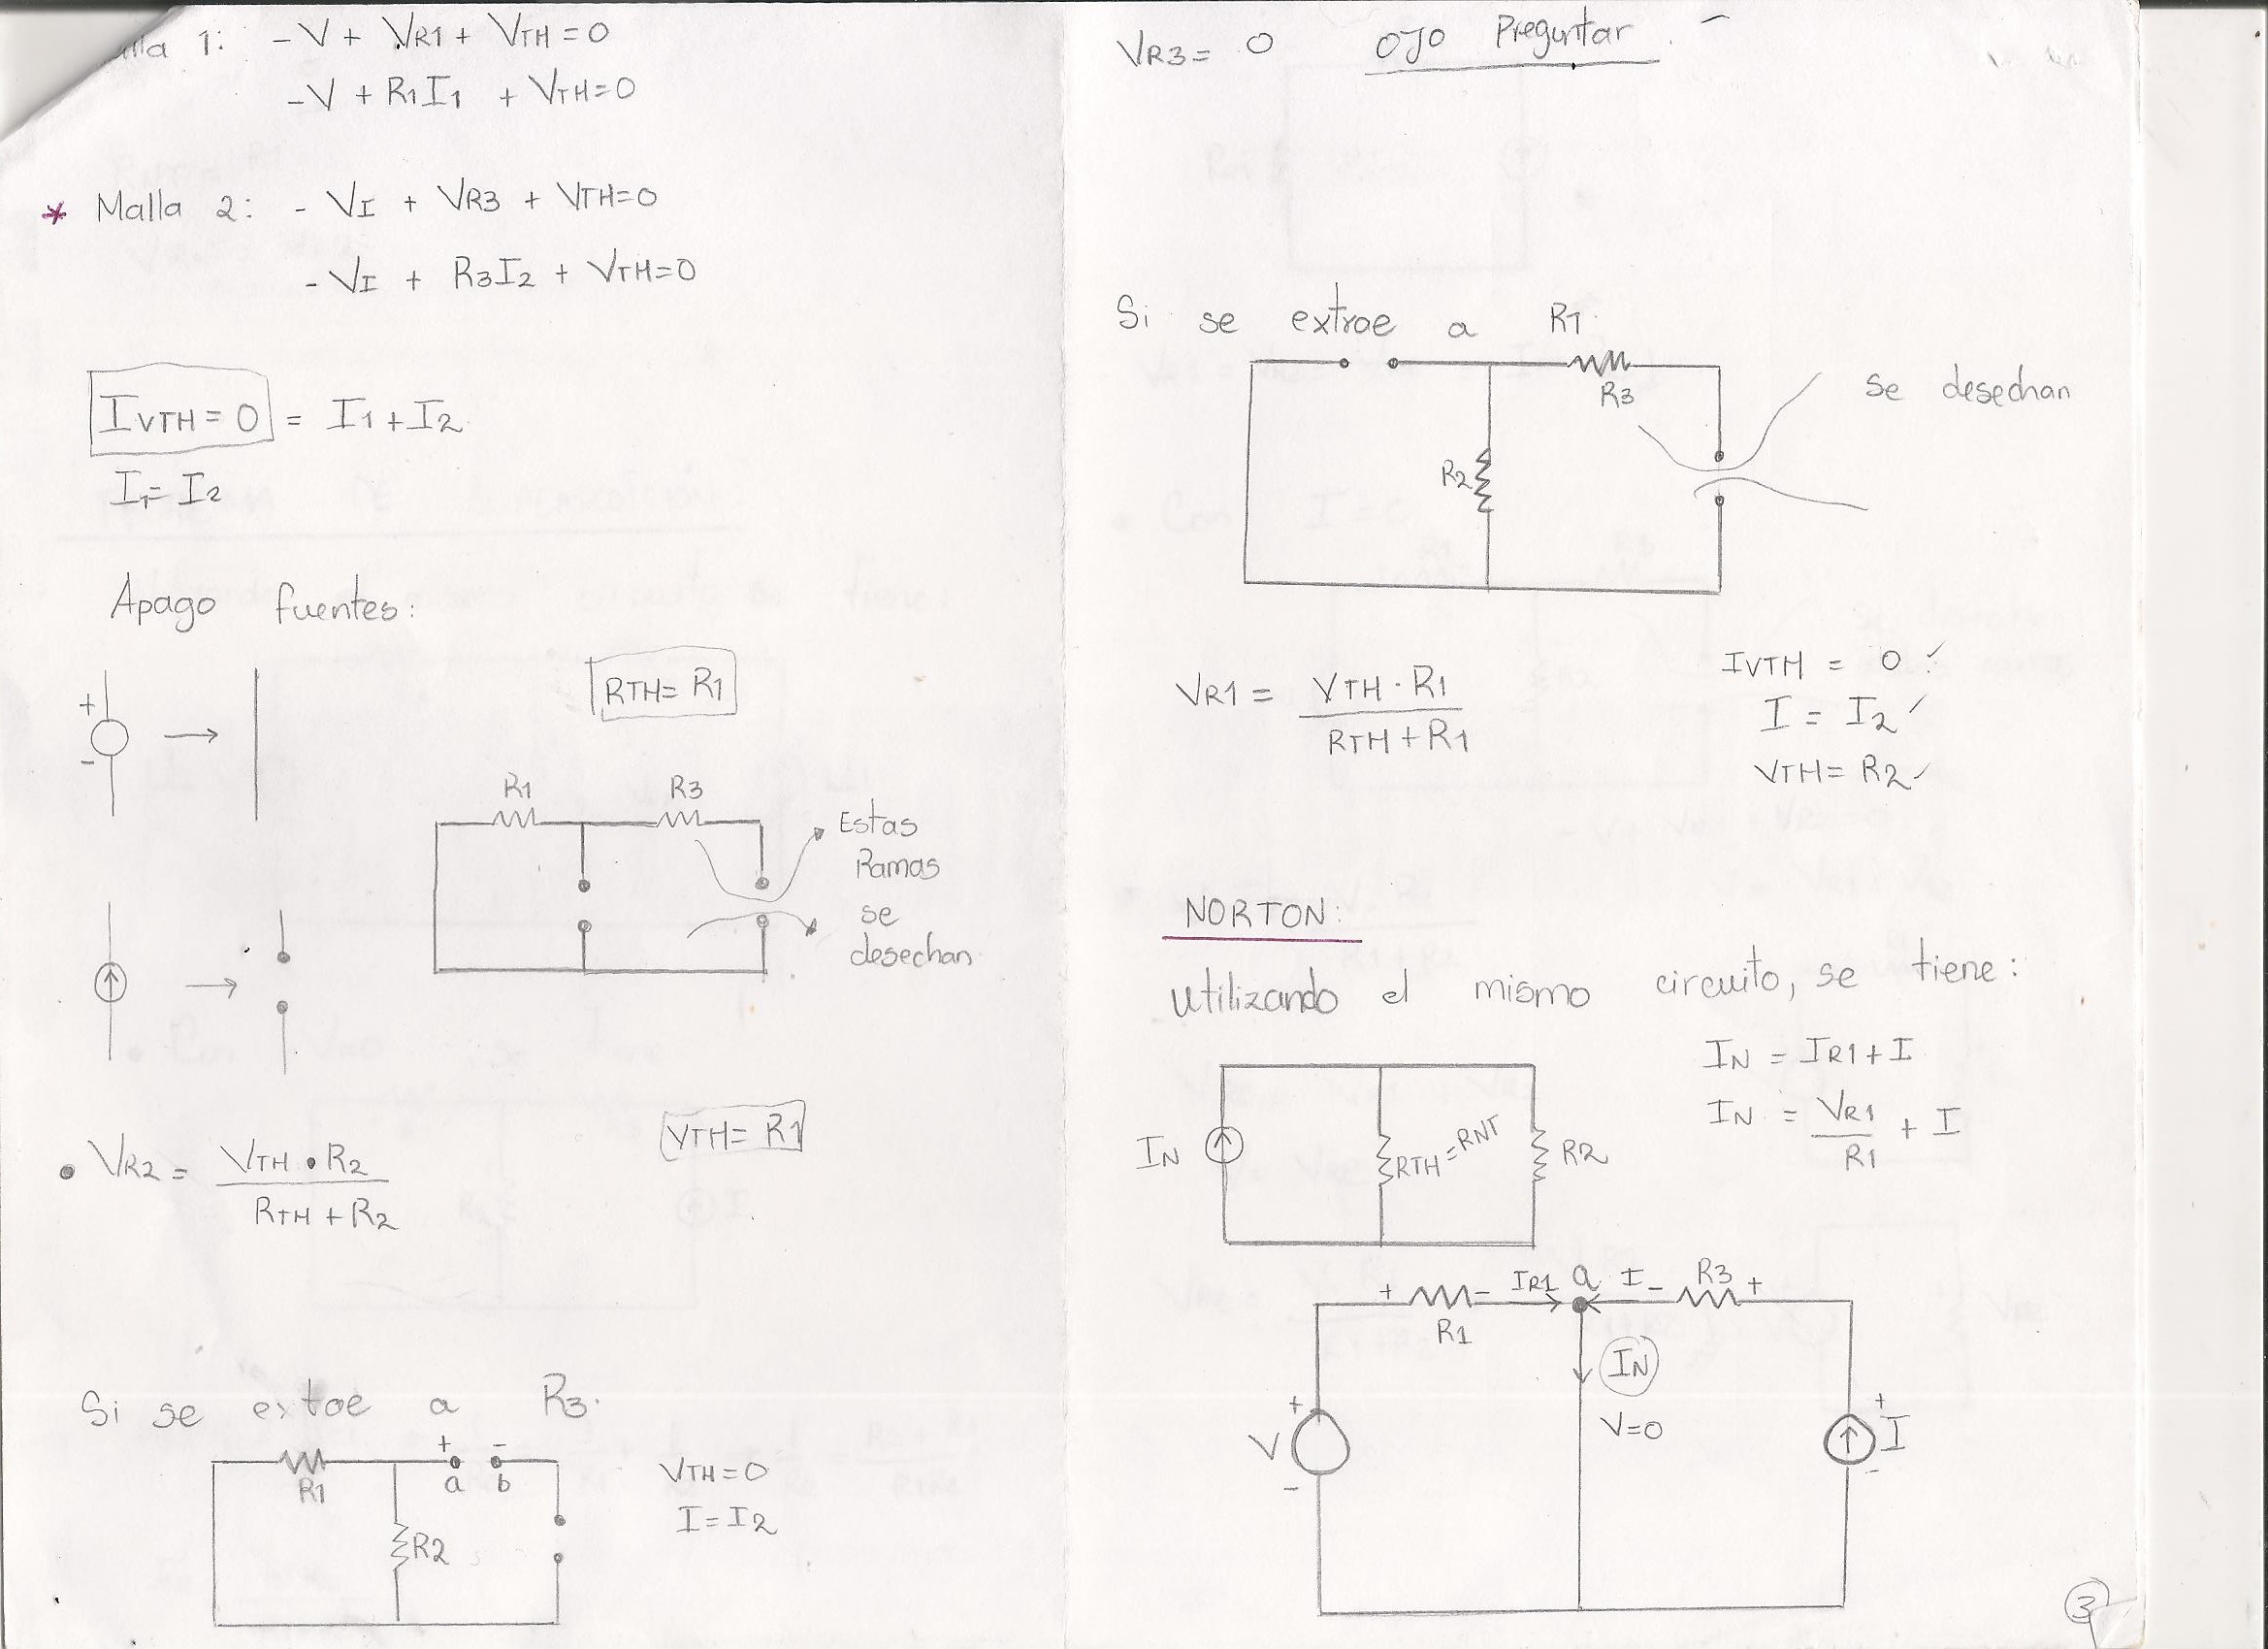 lla 1: -V + VR1 + VTH = 0
-V + R1I1 + VTH = 0
* Malla 2: - VI + VR3 + VTH = 0
- VI + R3I2 + VTH = 0
IVTH = 0 = I1 + I2
I1 = I2
Apago fuentes:
+
-
RTH = R1
R1 R3
Estas
Ramas
se
desechan
VTH = R1
• VR2 = VTH • R2
RTH + R2
Si se extae a R3.
R1
+ -
a b
R2
VTH = 0
I = I2
VR3 = 0 OJO Preguntar.
Si se extrae a R1
R3
R2
se desechan
VR1 = VTH · R1
RTH + R1
IVTH = 0 ✓
I = I2 ✓
VTH = R2 ✓
NORTON:
utilizando el mismo circuito, se tiene:
IN = IR1 + I
IN = VR1 + I
R1
IN
RTH = RNT
R2
+ - IR1 a I - R3 +
R1
IN
V=0
+
V
-
+
I
-
3